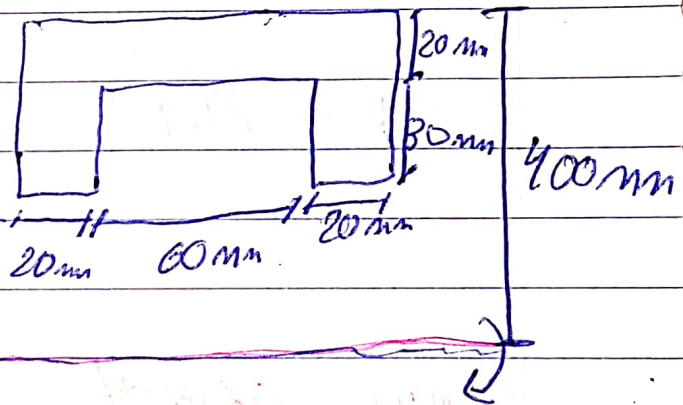 20mm
30mm
400mm
20mm 60mm 20mm